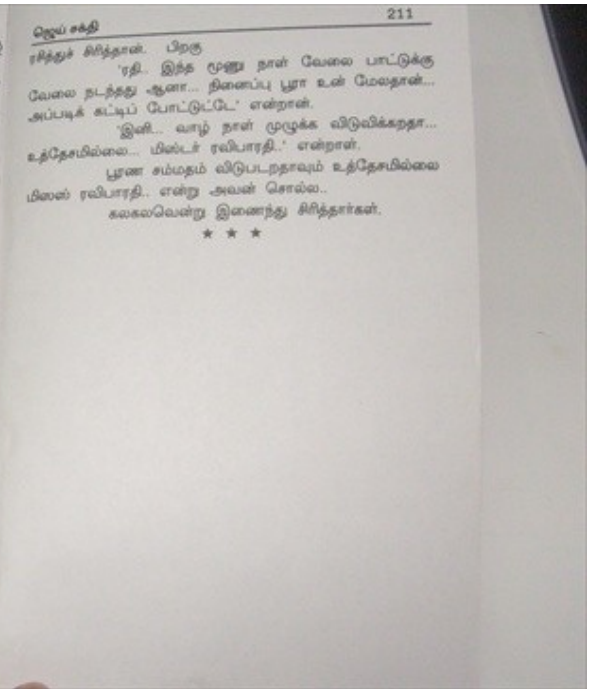 ஜெய் சக்தி
211
ரசித்துச் சிரித்தான். பிறகு
'ரதி.. இந்த மூணு நாள் வேலை பாட்டுக்கு
வேலை நடந்தது ஆனா... நினைப்பு பூரா உன் மேலதான்...
அப்படிக் கட்டிப் போட்டுட்டே' என்றான்.
'இனி... வாழ் நாள் முழுக்க விடுவிக்கறதா...
உத்தேசமில்லை... மிஸ்டர் ரவிபாரதி..' என்றாள்.
பூரண சம்மதம் விடுபடறதாவும் உத்தேசமில்லை
மிஸஸ் ரவிபாரதி.. என்று அவன் சொல்ல..
கலகலவென்று இணைந்து சிரித்தார்கள்.
★ ★ ★